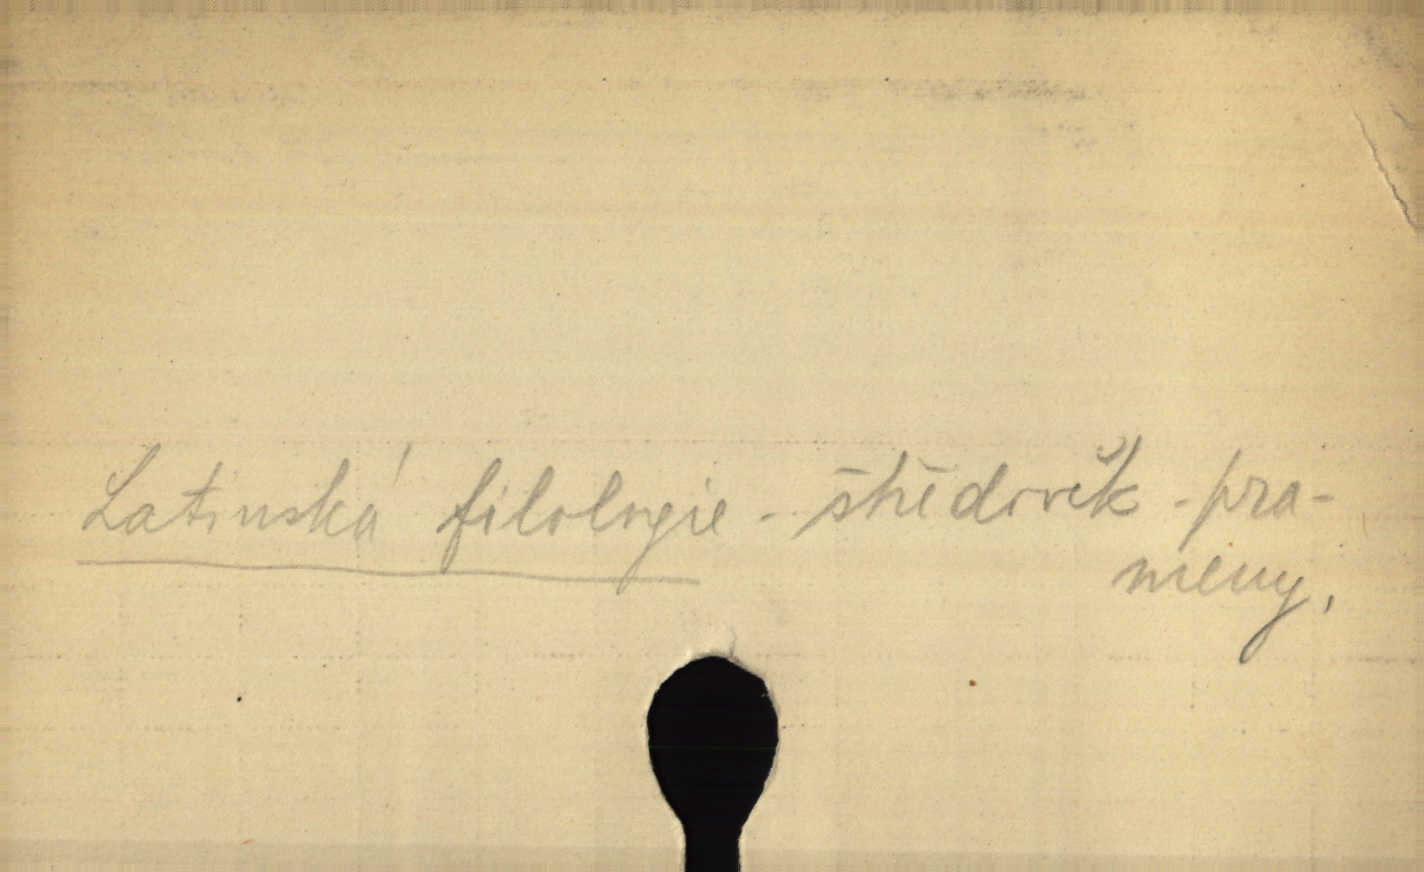 Latinská filologie - středověk - pra-
meny.